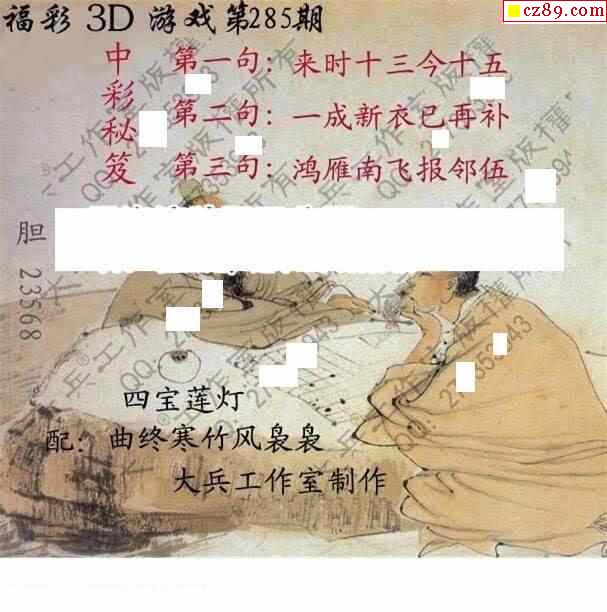 cz89.com
福彩 3D 游戏第285期
中彩秘笈
第一句：来时十三今十五
第二句：一成新衣已再补
第三句：鸿雁南飞报邻伍
胆 23568
四宝莲灯
配：曲终寒竹风袅袅
大兵工作室制作